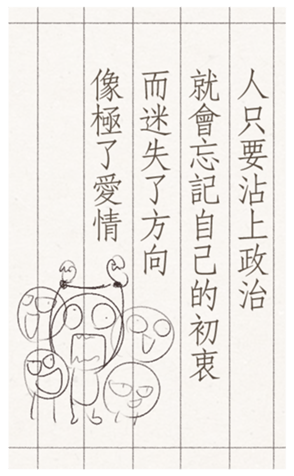 人只要沾上政治
就會忘記自己的初衷
而迷失了方向
像極了愛情